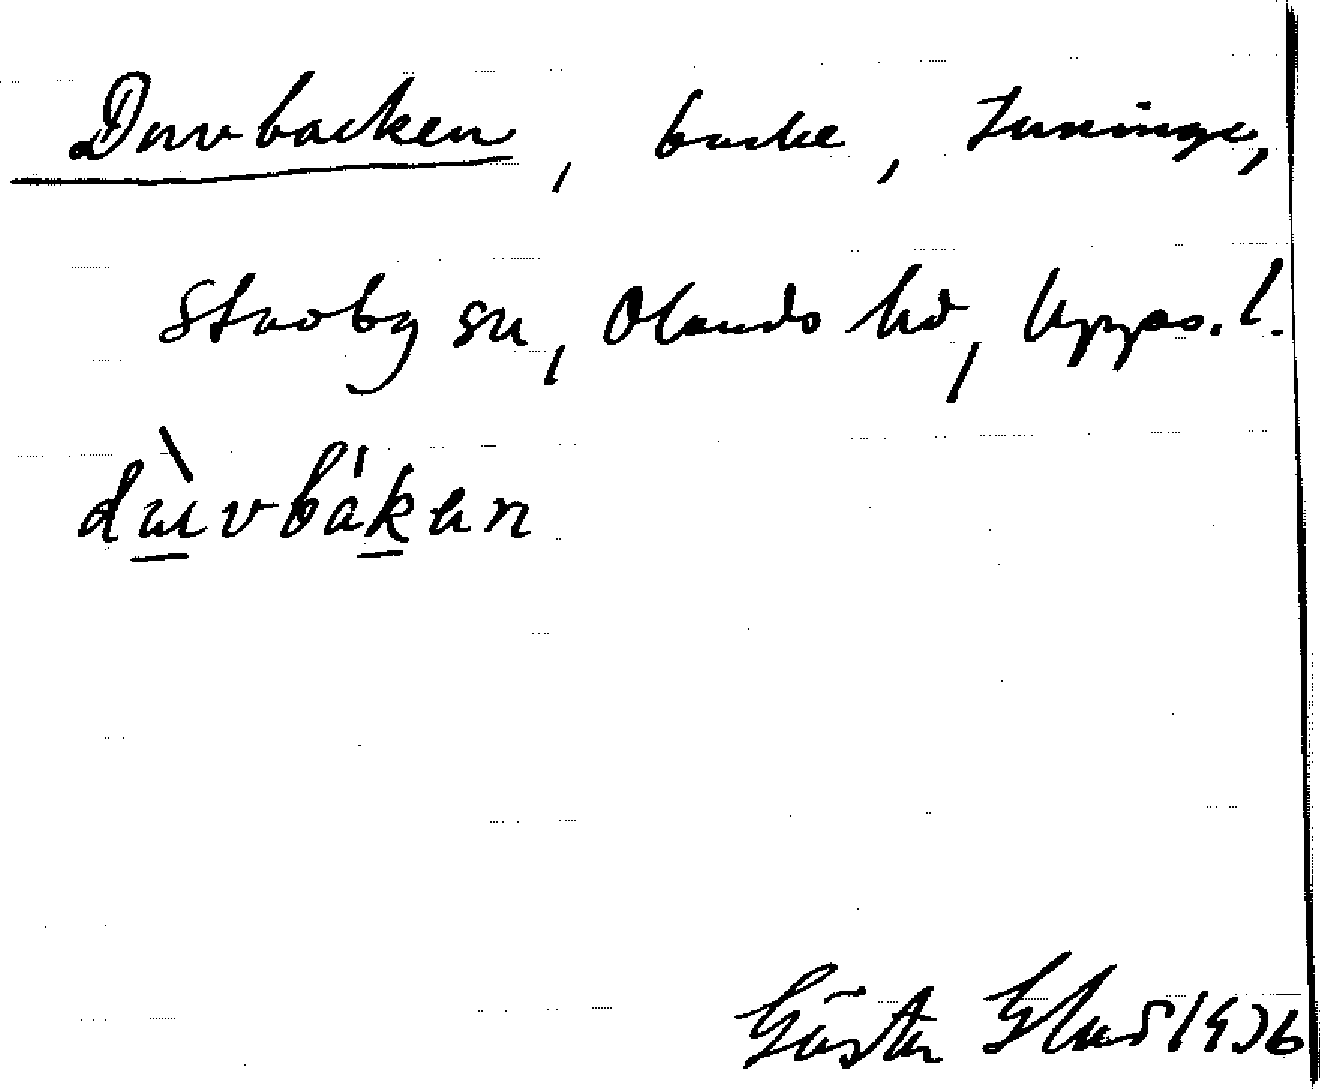 Duvbacken, backe, Tuninge,
Stavby sn, Olands hd, Upps. l.
dùvbákan
Gösta Glas 1936